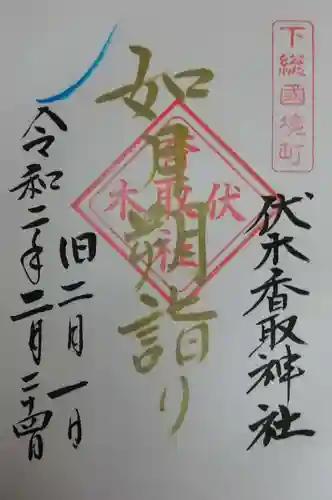 下総國境町
伏木香取神社
如月朔詣り
伏木
香取
社
旧二月一日
令和二年二月二十四日